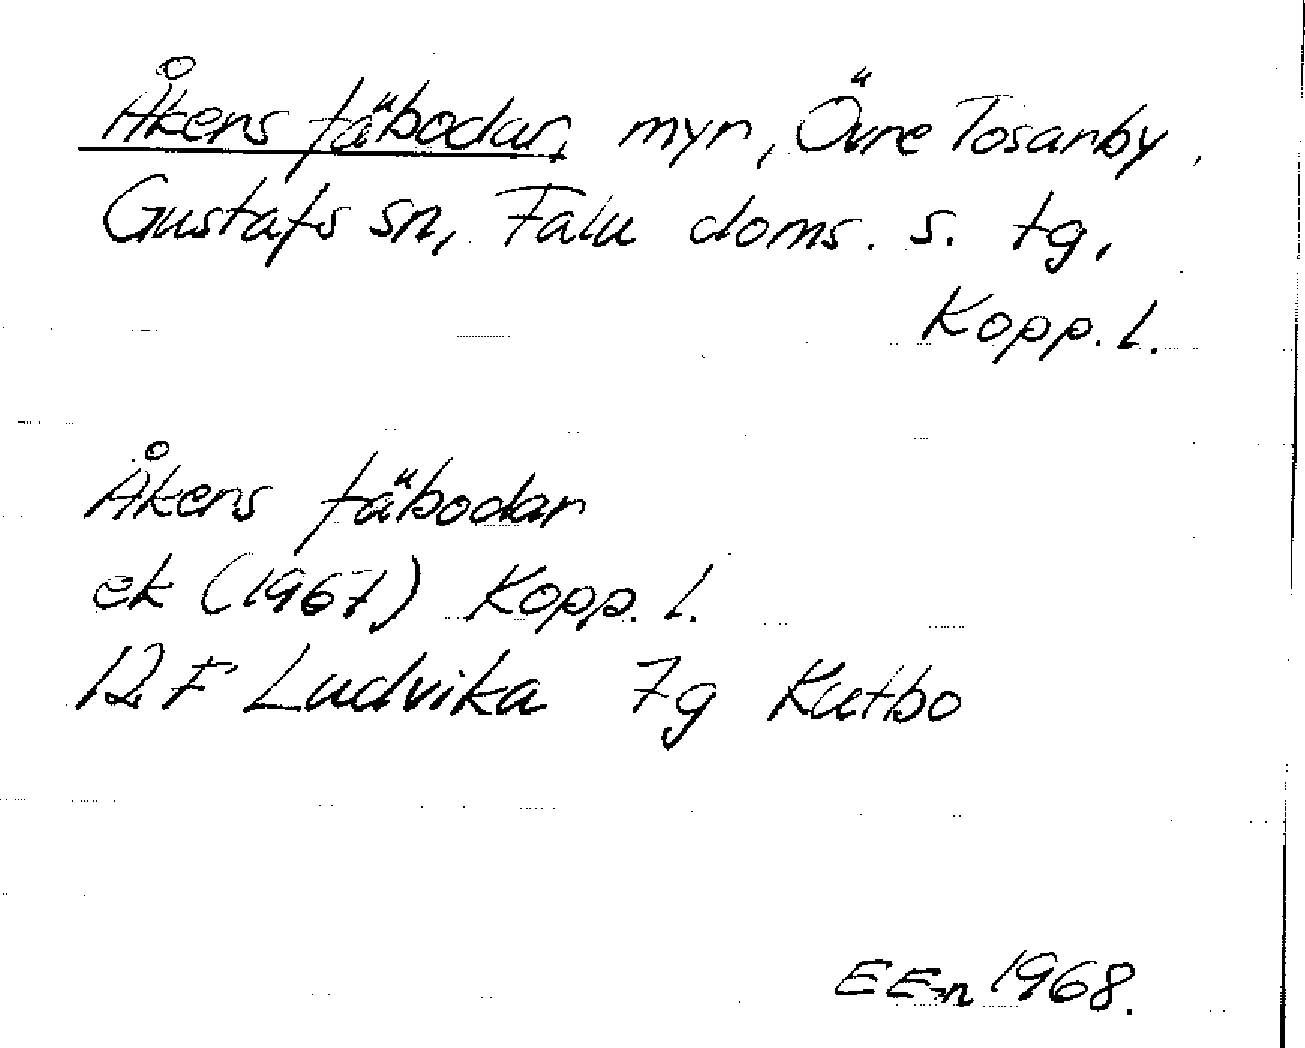 Åkens fäbodar, myr, Övre Tosarby.
Gustafs sn, Falu doms. s. tg,
Kopp. l.
Åkens fäbodar
ek (1967) Kopp. l.
12 F Ludvika 7g Kutbo
EEn 1968.